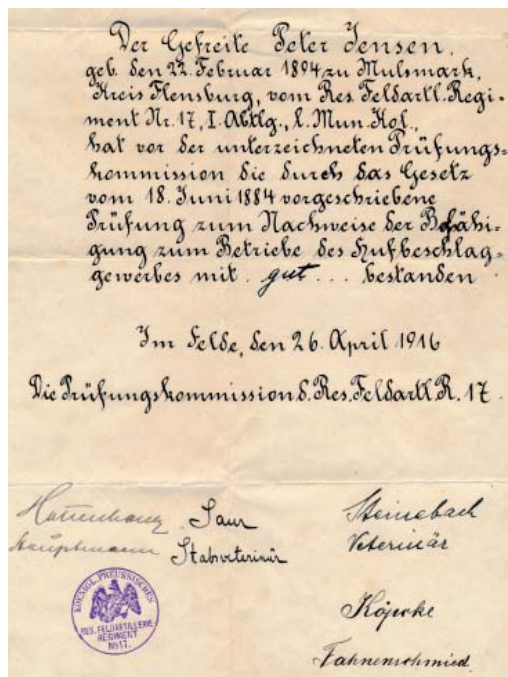 Der Gefreite Peter Jensen,
geb. den 22. Februar 1894 zu Mulsmark,
Kreis Flensburg, vom Res. Feldartl. Regi-
ment Nr. 17, I. Abtlg., l. Mun. Kol.,
hat vor der unterzeichneten Prüfungs-
kommission die durch das Gesetz
vom 18. Juni 1884 vorgeschriebene
Prüfung zum Nachweise der Befähi-
gung zum Betriebe des Hufbeschlag-
gewerbes mit . gut ... bestanden
Im Felde, den 26. April 1916
Die Prüfungskommission d. Res. Feldartl. R. 17.
Saur
Steinebach
Hauptmann
Stabsveterinär
Veterinär
KOENIGL. PREUSSISCHES
RES. FELDARTILLERIE
REGIMENT
No 17.
Köpcke
Fahnenschmied